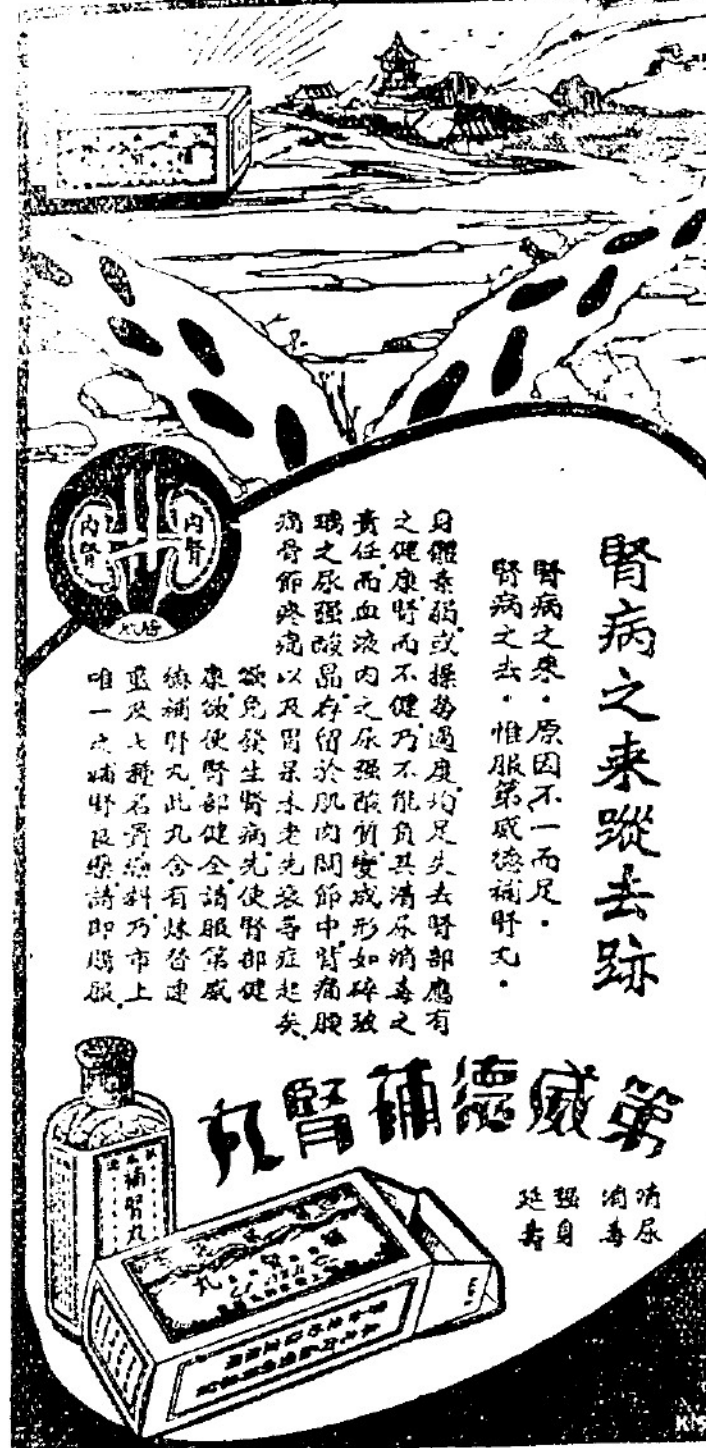 腎病之来蹤去跡
腎病之来。原因不一而足。
腎病之去。惟服第威德補腎丸。
身體素弱。或操勞過度。均足失去腎部應有
之健康。腎而不健。乃不能負其清尿消毒之
責任。而血液内之尿强酸質。變成形如碎玻
璃之尿强酸晶。存留於肌肉關節中。背痛腰
痛骨節疼痛以及胃呆未老先衰等症起矣。
欲免發生腎病。先使腎部健
康。欲使腎部健全。請服第威
德補腎丸。此丸含有
藍及七種名貴藥料。乃市上
唯一之補腎良藥。請即購服。
内腎
内腎
膀胱
第威德補腎丸
清尿
消毒
强身
延壽
補腎丸
KIS